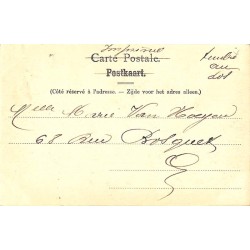 Imprimé
Carte Postale.
Postkaart.
timbre
au
dos
(Côté réservé à l'adresse. — Zijde voor het adres alleen.)
Melle Marie Van
68 Rue Bosquet